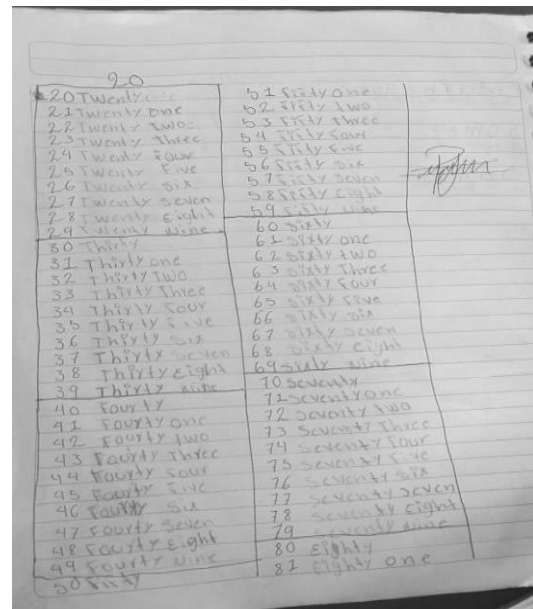 20
20 Twenty
21 Twenty one
22 Twenty Two
23 Twenty Three
24 Twenty Four
25 Twenty Five
26 Twenty Six
27 Twenty Seven
28 Twenty Eight
29 Twenty Nine
30 Thirty
31 Thirty one
32 Thirty Two
33 Thirty Three
34 Thirty Four
35 Thirty Five
36 Thirty Six
37 Thirty Seven
38 Thirty Eight
39 Thirty Nine
40 Fourty
41 Fourty one
42 Fourty two
43 Fourty Three
44 Fourty Four
45 Fourty Five
46 Fourty Six
47 Fourty Seven
48 Fourty Eight
49 Fourty Nine
50 Fifty
51 Fifty one
52 Fifty two
53 Fifty Three
54 Fifty Four
55 Fifty Five
56 Fifty Six
57 Fifty Seven
58 Fifty Eight
59 Fifty Nine
60 Sixty
61 Sixty one
62 Sixty two
63 Sixty Three
64 Sixty Four
65 Sixty Five
66 Sixty Six
67 Sixty Seven
68 Sixty Eight
69 Sixty Nine
70 Seventy
71 Seventy one
72 Seventy two
73 Seventy Three
74 Seventy Four
75 Seventy Five
76 Seventy Six
77 Seventy Seven
78 Seventy Eight
79 Seventy Nine
80 Eighty
81 Eighty one